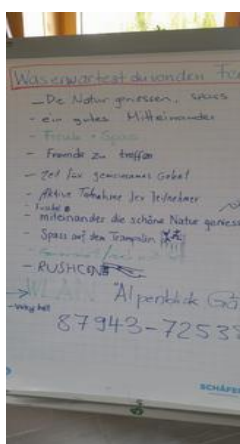 Was erwartest du von den
– Die Natur geniessen, spass
– ein gutes Mitteinander
– Freude + Spass
– Freunde zu treffen
– Zeit für gemeinsames Gebet
– Aktive Teilnahme der Teilnehmer
– miteinander die schöne Natur genies
– Spass auf dem Trampolin
– RUSHCON
WLAN Alpenblick
87943-7253
SCHÄFER